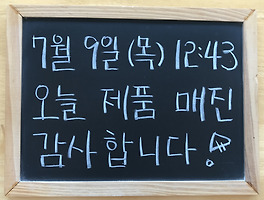 7월 9일 (목) 12:43
오늘 제품 매진
감사합니다!